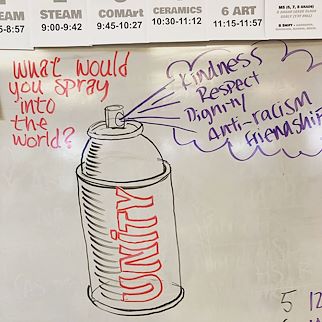 STEAM
COMArt
CERAMICS
6 ART
5-8:57
9:00-9:42
9:45-10:27
10:30-11:12
11:15-11:57
What would
you spray
into
the
world?
Kindness
Respect
Dignity
Anti-racism
friendship
UNITY
5 12